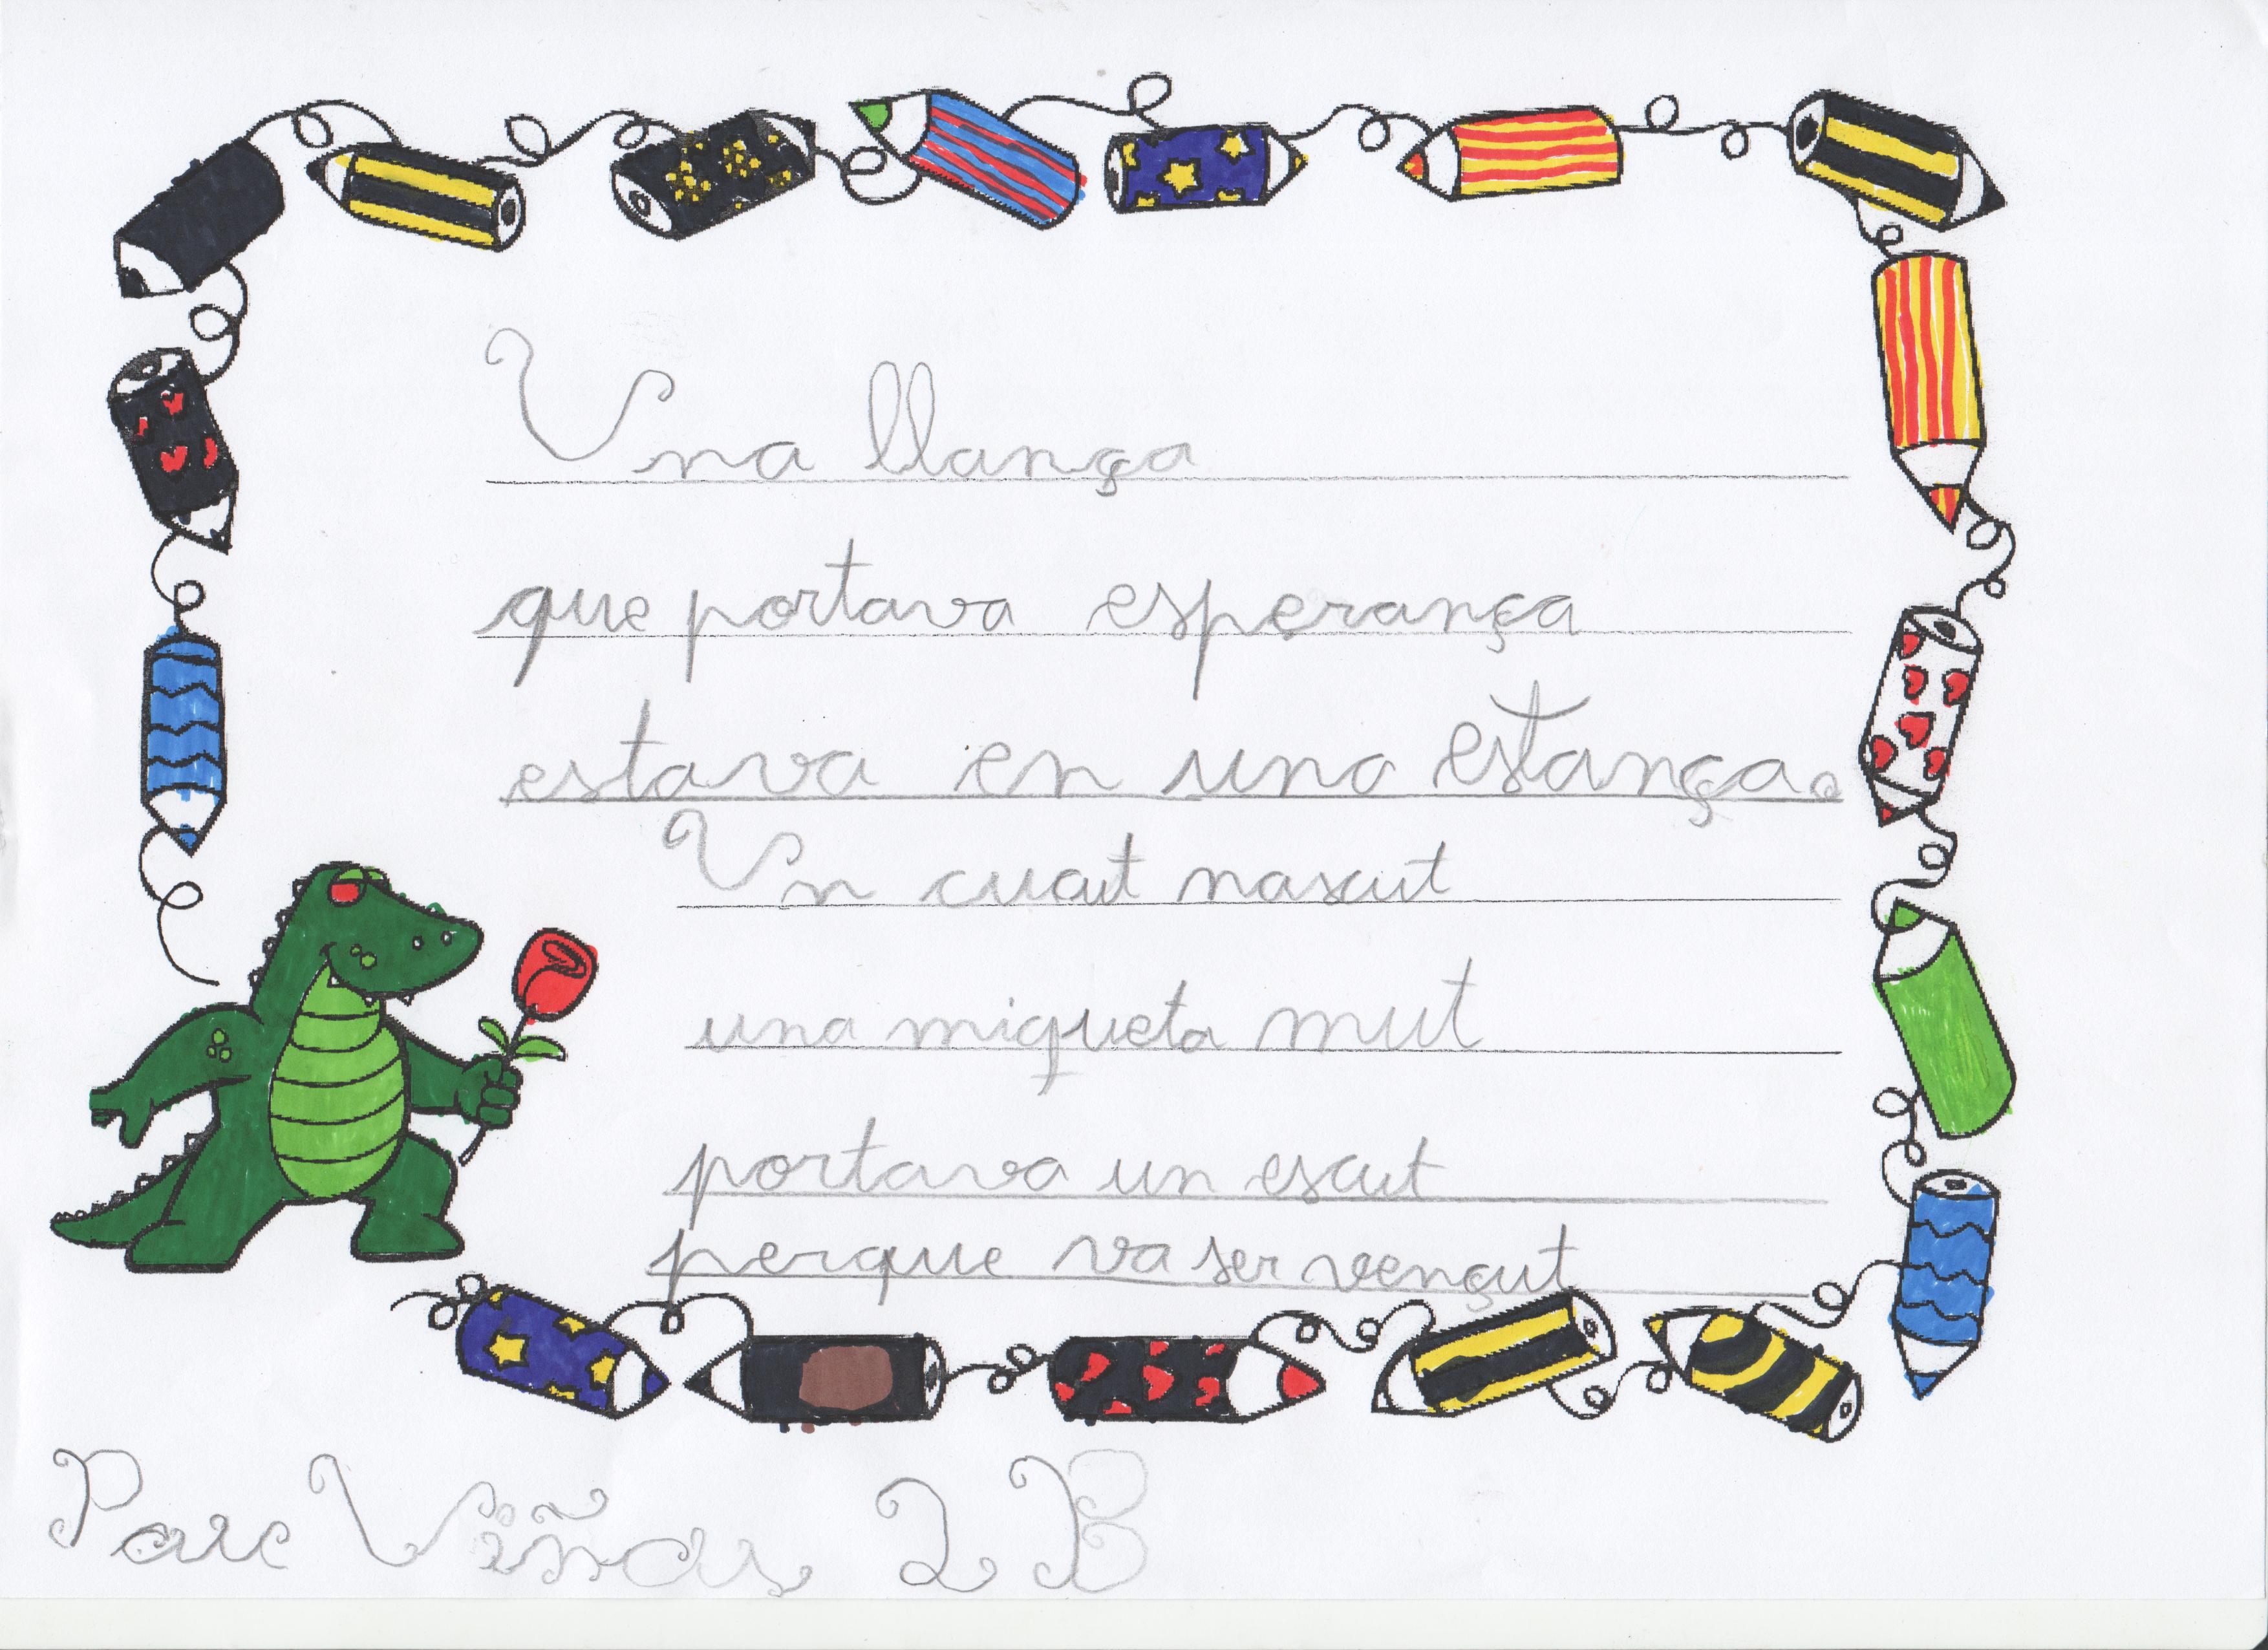 Una llança
que portava esperança
estava en una estança.
Un cuat nascut
una miqueta mut
portava un escut
perque va ser vençut
Pau Viñas 2B